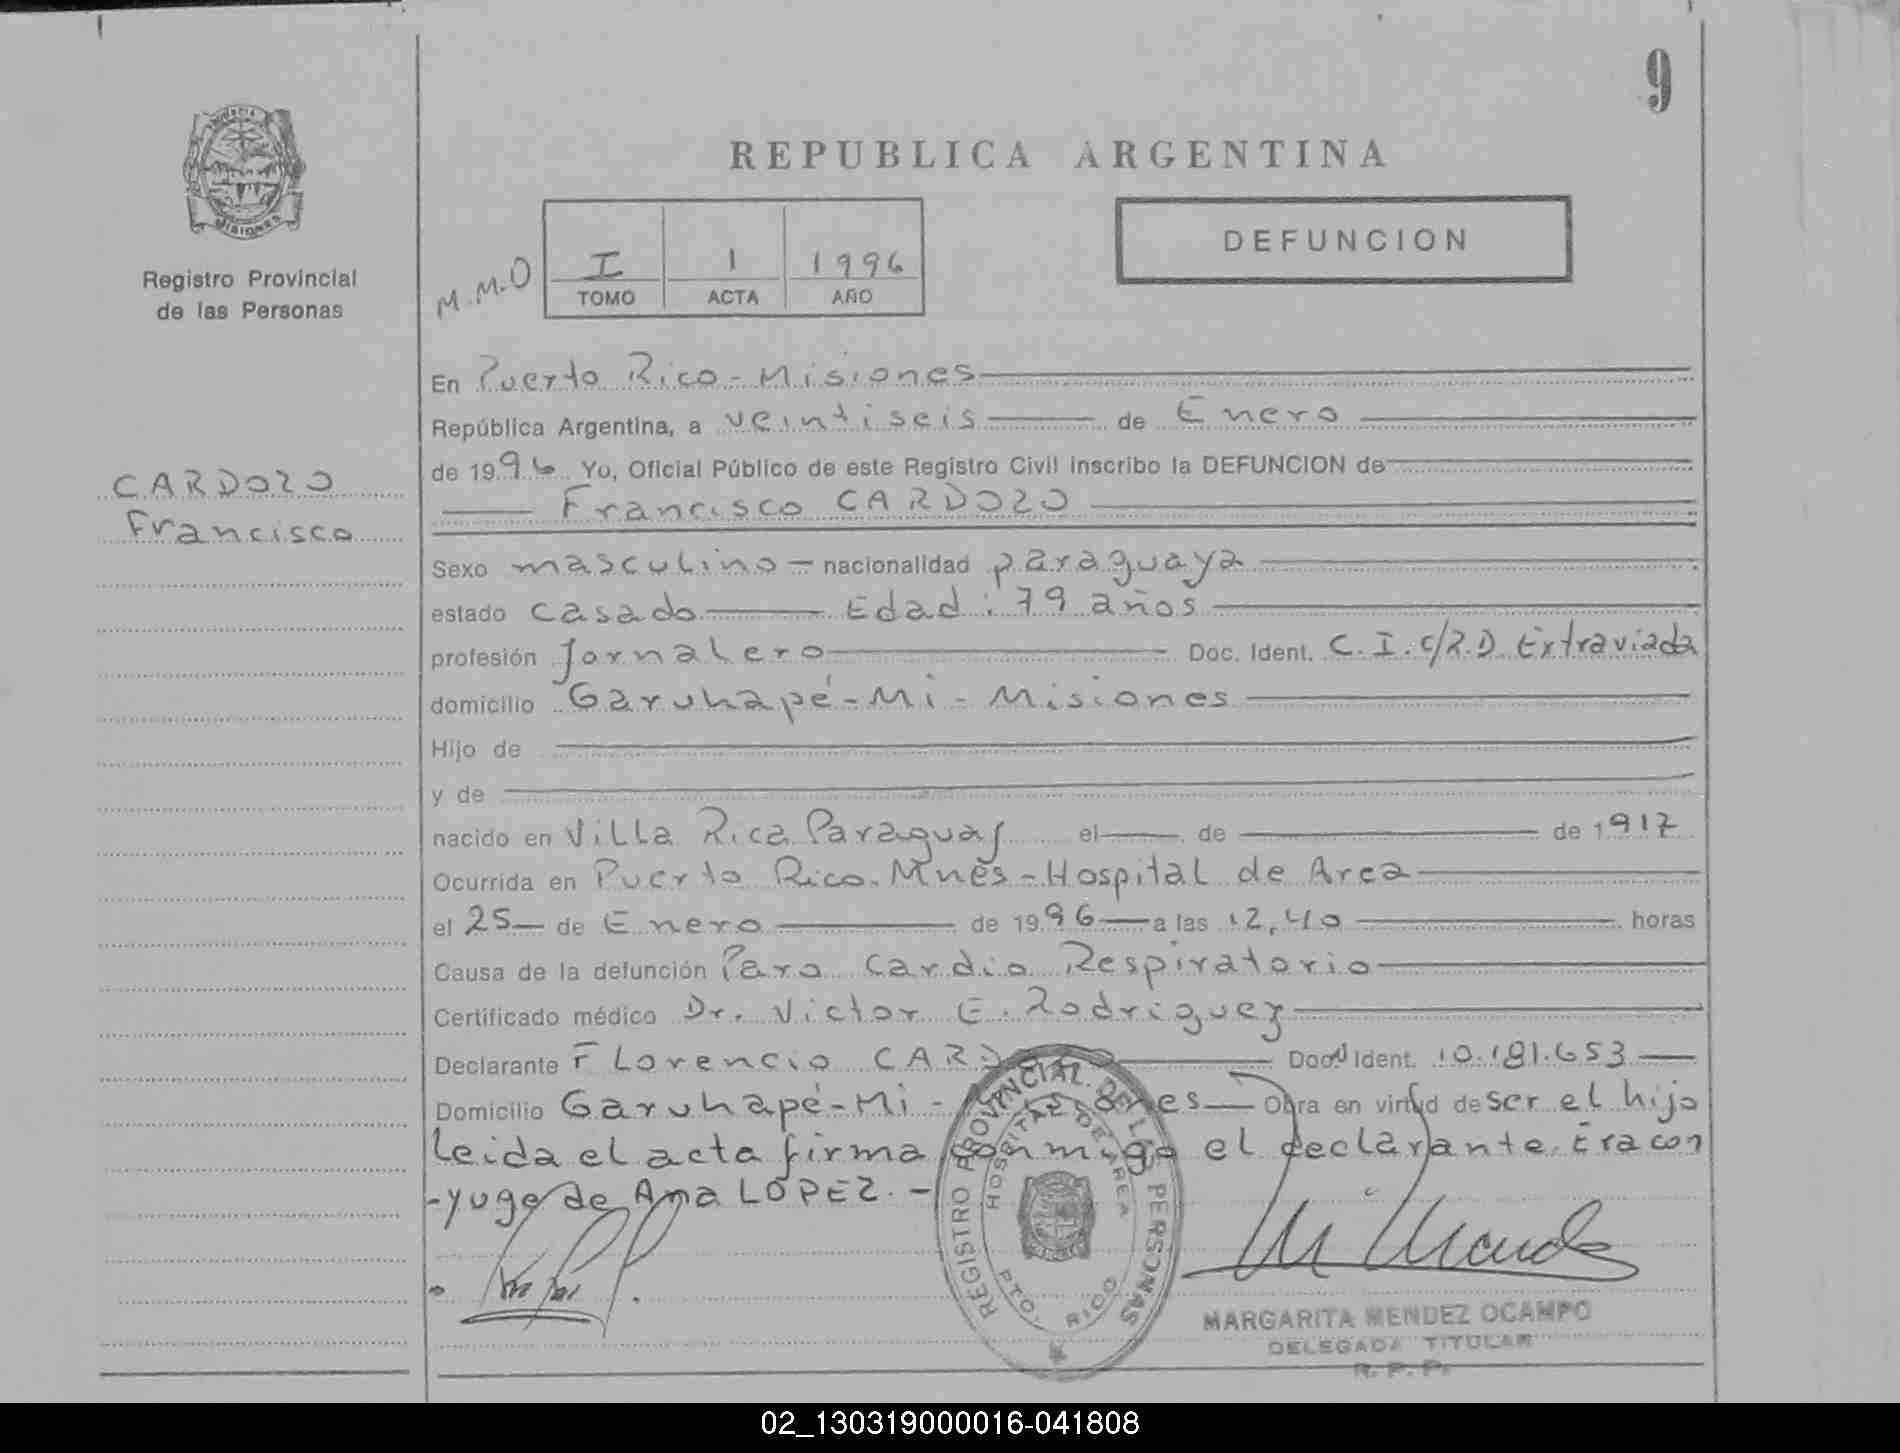 9
PROVINCIA
MISIONES
Registro Provincial
de las Personas
REPUBLICA ARGENTINA
M.M.O
I 1 1996
TOMO ACTA AÑO
DEFUNCION
CARDOZO
Francisco
En Puerto Rico - Misiones
República Argentina, a veintiseis de Enero
de 1996 Yo, Oficial Público de este Registro Civil inscribo la DEFUNCION de
Francisco CARDOZO
Sexo masculino - nacionalidad paraguaya
estado casado Edad: 79 años
profesión Jornalero Doc. Ident. C.I. c/R.D Extraviada
domicilio Garuhapé-Mi - Misiones
Hijo de
y de
nacido en Villa Rica Paraguay el de de 1917
Ocurrida en Puerto Rico. Mnes - Hospital de Area
el 25 de Enero de 1996 a las 12,40 horas
Causa de la defunción Paro Cardio Respiratorio
Certificado médico Dr. Victor E. Rodriguez
Declarante Florencio CARDOZO Doc. Ident. 10.181.653
Domicilio Garuhapé-Mi - Misiones Obra en virtud de ser el hijo
leida el acta firma conmigo el declarante. Era con
-yuge de Ana LOPEZ. -
REGISTRO PROVINCIAL DE LAS PERSONAS
HOSPITAL DE AREA
PTO. RICO
MARGARITA MENDEZ OCAMPO
DELEGADA TITULAR
R. P. P.
02_130319000016-041808